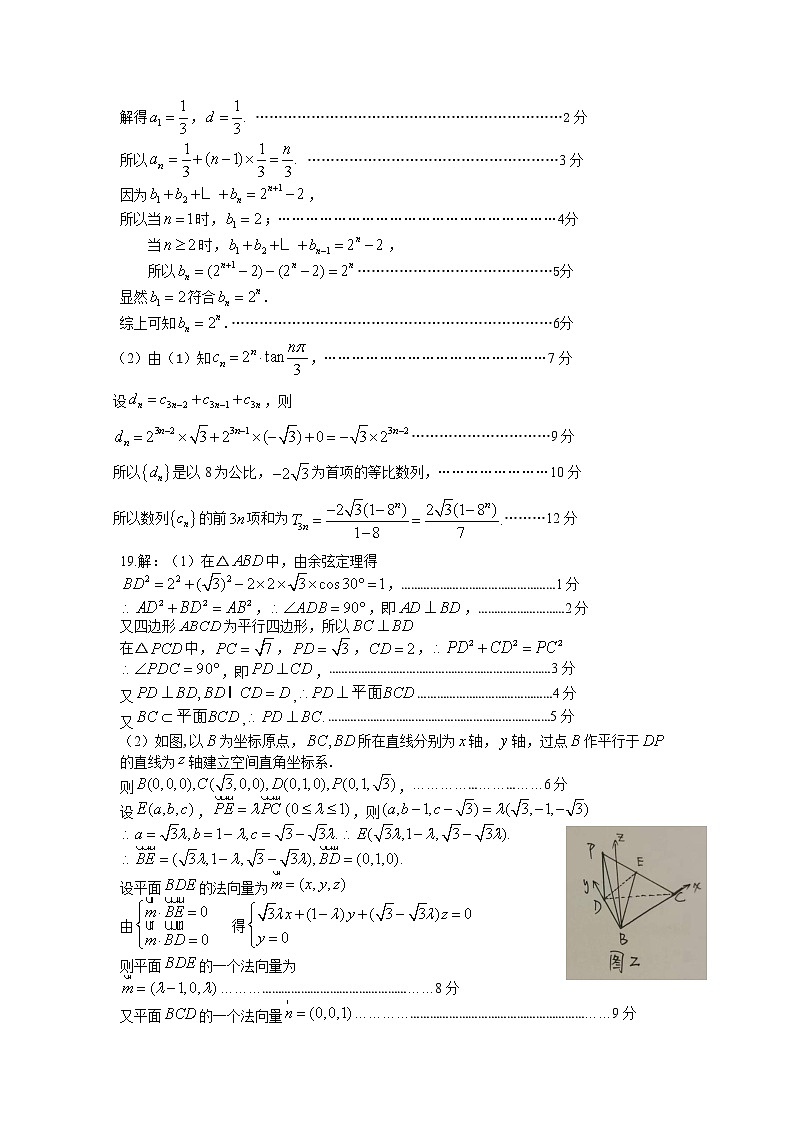 解得a₁ = 1/3, d = 1/3. ………………………………………………………2 分
所以aₙ = 1/3 + (n − 1) × 1/3 = n/3. ………………………………………………3 分
因为b₁ + b₂ + L + bₙ = 2ⁿ⁺¹ − 2，
所以当n = 1时，b₁ = 2；……………………………………………………4分
当n ≥ 2时，b₁ + b₂ + L + bₙ₋₁ = 2ⁿ − 2，
所以bₙ = (2ⁿ⁺¹ − 2) − (2ⁿ − 2) = 2ⁿ……………………………………5分
显然b₁ = 2符合bₙ = 2ⁿ.
综上可知bₙ = 2ⁿ.……………………………………………………………6分
（2）由（1）知cₙ = 2ⁿ · tan nπ/3，…………………………………………7 分
设dₙ = c₃ₙ₋₂ + c₃ₙ₋₁ + c₃ₙ，则
dₙ = 2³ⁿ⁻² × √3 + 2³ⁿ⁻¹ × (−√3) + 0 = −√3 × 2³ⁿ⁻²…………………………9 分
所以{dₙ}是以 8 为公比，−2√3为首项的等比数列，……………………10 分
所以数列{cₙ}的前3n项和为T₃ₙ = −2√3(1−8ⁿ)/(1−8) = 2√3(1−8ⁿ)/7.………12 分
19.解：（1）在△ABD中，由余弦定理得
BD² = 2² + (√3)² − 2×2×√3×cos30° = 1，……………………………………1 分
∴ AD² + BD² = AB²，∴ ∠ADB = 90°，即AD ⊥ BD，………………………2 分
又四边形ABCD为平行四边形，所以BC ⊥ BD
在△PCD中，PC = √7，PD = √3，CD = 2，∴ PD² + CD² = PC²
∴ ∠PDC = 90°，即PD ⊥ CD，……………………………………………………3 分
又PD ⊥ BD, BD I CD = D ,∴ PD ⊥ 平面BCD………………………………4 分
又BC ⊂ 平面BCD ,∴ PD ⊥ BC.……………………………………………………5 分
（2）如图,以B为坐标原点，BC, BD所在直线分别为x轴，y轴，过点B作平行于DP
的直线为z轴建立空间直角坐标系.
则B(0,0,0), C(√3,0,0), D(0,1,0), P(0,1,√3)，……………………6 分
设E(a,b,c)，PE = λPC (0 ≤ λ ≤ 1)，则(a,b−1,c−√3) = λ(√3,−1,−√3)
∴ a = √3λ, b = 1−λ, c = √3 − √3λ. ∴ E(√3λ,1−λ,√3 − √3λ).
∴ BE = (√3λ,1−λ,√3 − √3λ), BD = (0,1,0).
z
P
E
y
D
C
x
B
图2
设平面BDE的法向量为m = (x,y,z)
由{m·BE = 0 得{√3λx + (1−λ)y + (√3 − √3λ)z = 0
m·BD = 0 y = 0
则平面BDE的一个法向量为
m = (λ−1,0,λ)……………………………………………8 分
又平面BCD的一个法向量n = (0,0,1)………………………………………………9 分